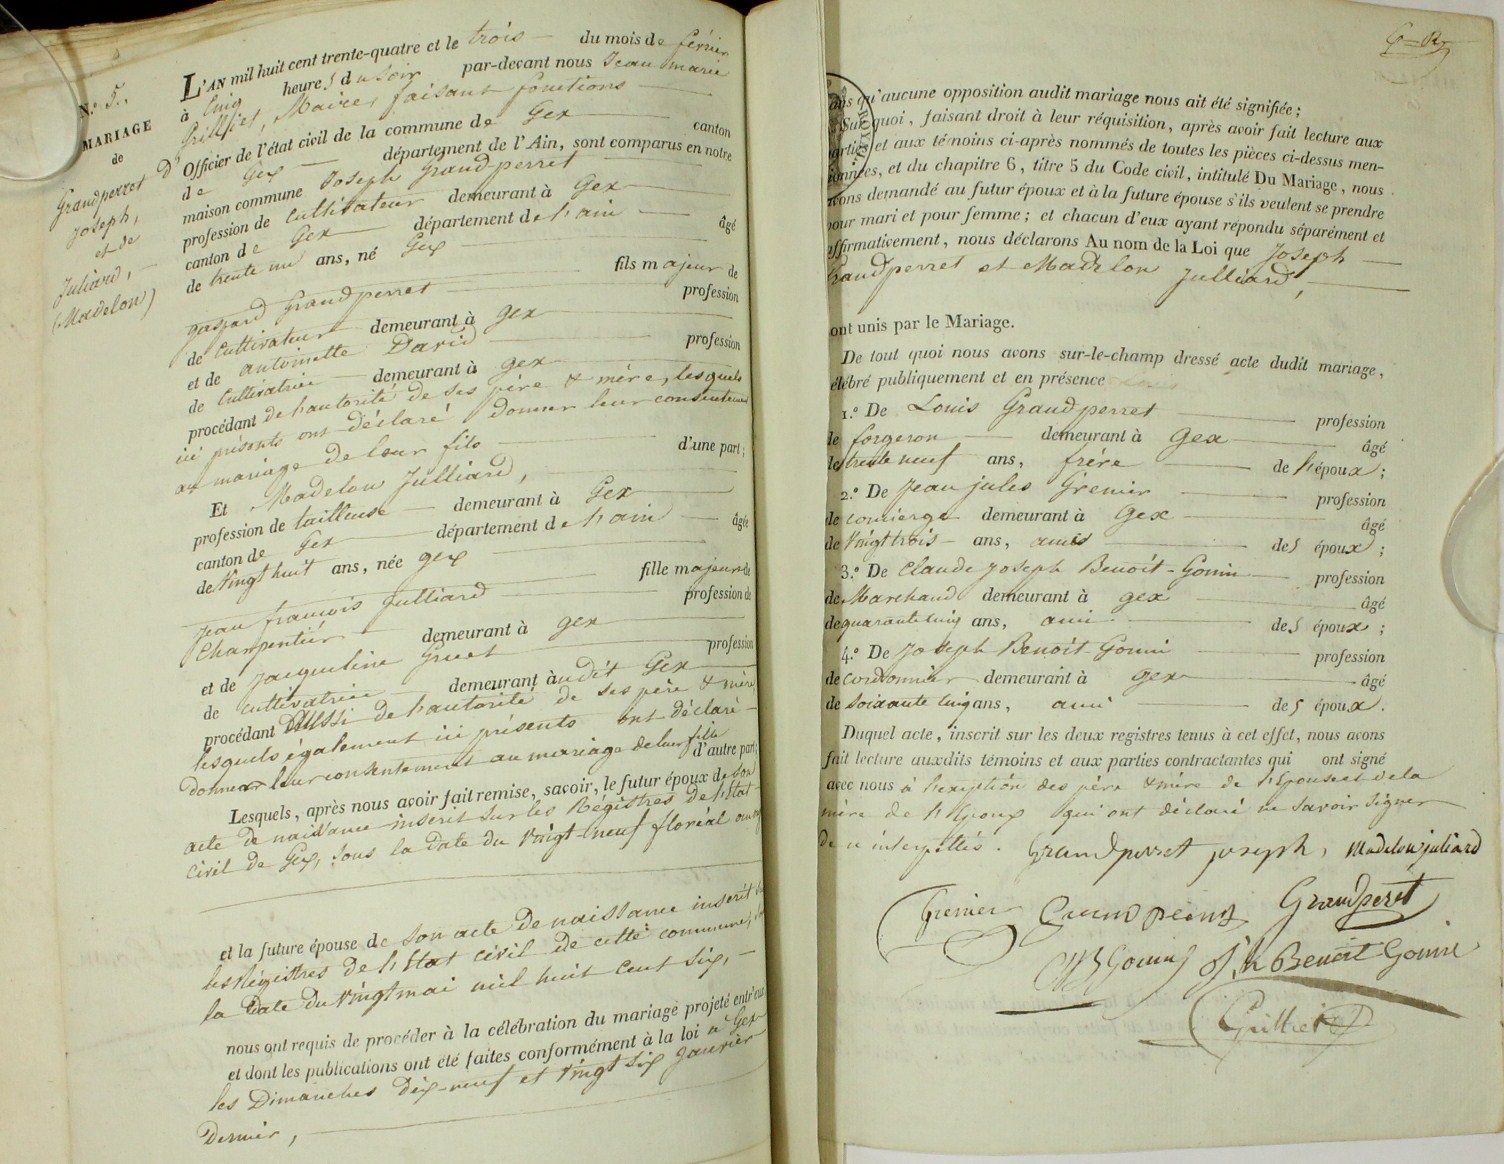 N.º 5.
MARIAGE
de
Grandperret
Joseph,
et de
Juliard,
(Madelon)
L'AN mil huit cent trente-quatre et le trois du mois de février
à cinq heures du soir par-devant nous Jean marie
Maire, faisant fonctions
D' Officier de l'état civil de la commune de Gex canton
de Gex département de l'Ain, sont comparus en notre
maison commune Joseph Grandperret
profession de cultivateur demeurant à Gex
canton de Gex département de l'ain âgé
de trente un ans, né Gex
fils majeur de
gaspard Grandperret profession
de cultivateur demeurant à gex
et de antoinette David profession
de cultivatrice demeurant à gex
procédant de l'autorité de ses père & mère, lesquels
ici présents ont déclaré donner leur consentement
au mariage de leur fils d'une part ;
Et Madelon Julliard,
profession de tailleuse demeurant à Gex
canton de Gex département de l'ain âgée
de vingt huit ans, née gex
fille majeure de
jean francois Julliard profession de
Charpentier demeurant à gex
et de jacqueline Gruet profession
de cultivatrice demeurant audit Gex
procédant aussi de l'autorité de ses père & mère
lesquels également ici présents ont déclaré
donner leur consentement au mariage de leur fille d'autre part;
Lesquels, après nous avoir fait remise, savoir, le futur époux de son
acte de naissance inscrit sur les Régistres de l'Etat
civil de Gex, sous la date du vingt-neuf floréal an
et la future épouse de son acte de naissance inserét
les Régistres de l'Etat civil de cette commune,
la date du vingt mai mil huit cent six,
nous ont requis de procéder à la célébration du mariage projeté entr'eux
et dont les publications ont été faites conformément à la loi à Gex
les Dimanches dix-neuf et vingt six janvier
dernier,
sans qu'aucune opposition audit mariage nous ait été signifiée ;
Sur quoi, faisant droit à leur réquisition, après avoir fait lecture aux
parties et aux témoins ci-après nommés de toutes les pièces ci-dessus men-
ionnées, et du chapitre 6, titre 5 du Code civil, intitulé Du Mariage, nous
avons demandé au futur époux et à la future épouse s'ils veulent se prendre
pour mari et pour femme ; et chacun d'eux ayant répondu séparément et
affirmativement, nous déclarons Au nom de la Loi que Joseph
Grandperret et Madelon Julliard,
ont unis par le Mariage.
De tout quoi nous avons sur-le-champ dressé acte dudit mariage,
célébré publiquement et en présence
1.º De Louis Grandperret profession
de forgeron demeurant à Gex âgé
de trente neuf ans, frère de l'époux ;
2.º De Jean jules Grenier profession
de concierge demeurant à Gex âgé
de vingt trois ans, amis des époux ;
3.º De Claude joseph Benoît-Gonin profession
de Marchand demeurant à gex âgé
de quarante cinq ans, ami des époux ;
4.º De Joseph Benoît Gonin profession
de cordonnier demeurant à gex âgé
de soixante cinq ans, ami des époux.
Duquel acte, inscrit sur les deux registres tenus à cet effet, nous avons
fait lecture auxdits témoins et aux parties contractantes qui ont signé
avec nous à l'exception des père & mère de l'Epouse et de la
mère de l'Epoux qui ont déclaré ne savoir signer
de ce interpellés. Grandperret joseph, Madelon juliard
Grenier Grandperret
Gonin Jh Benoit Gonin